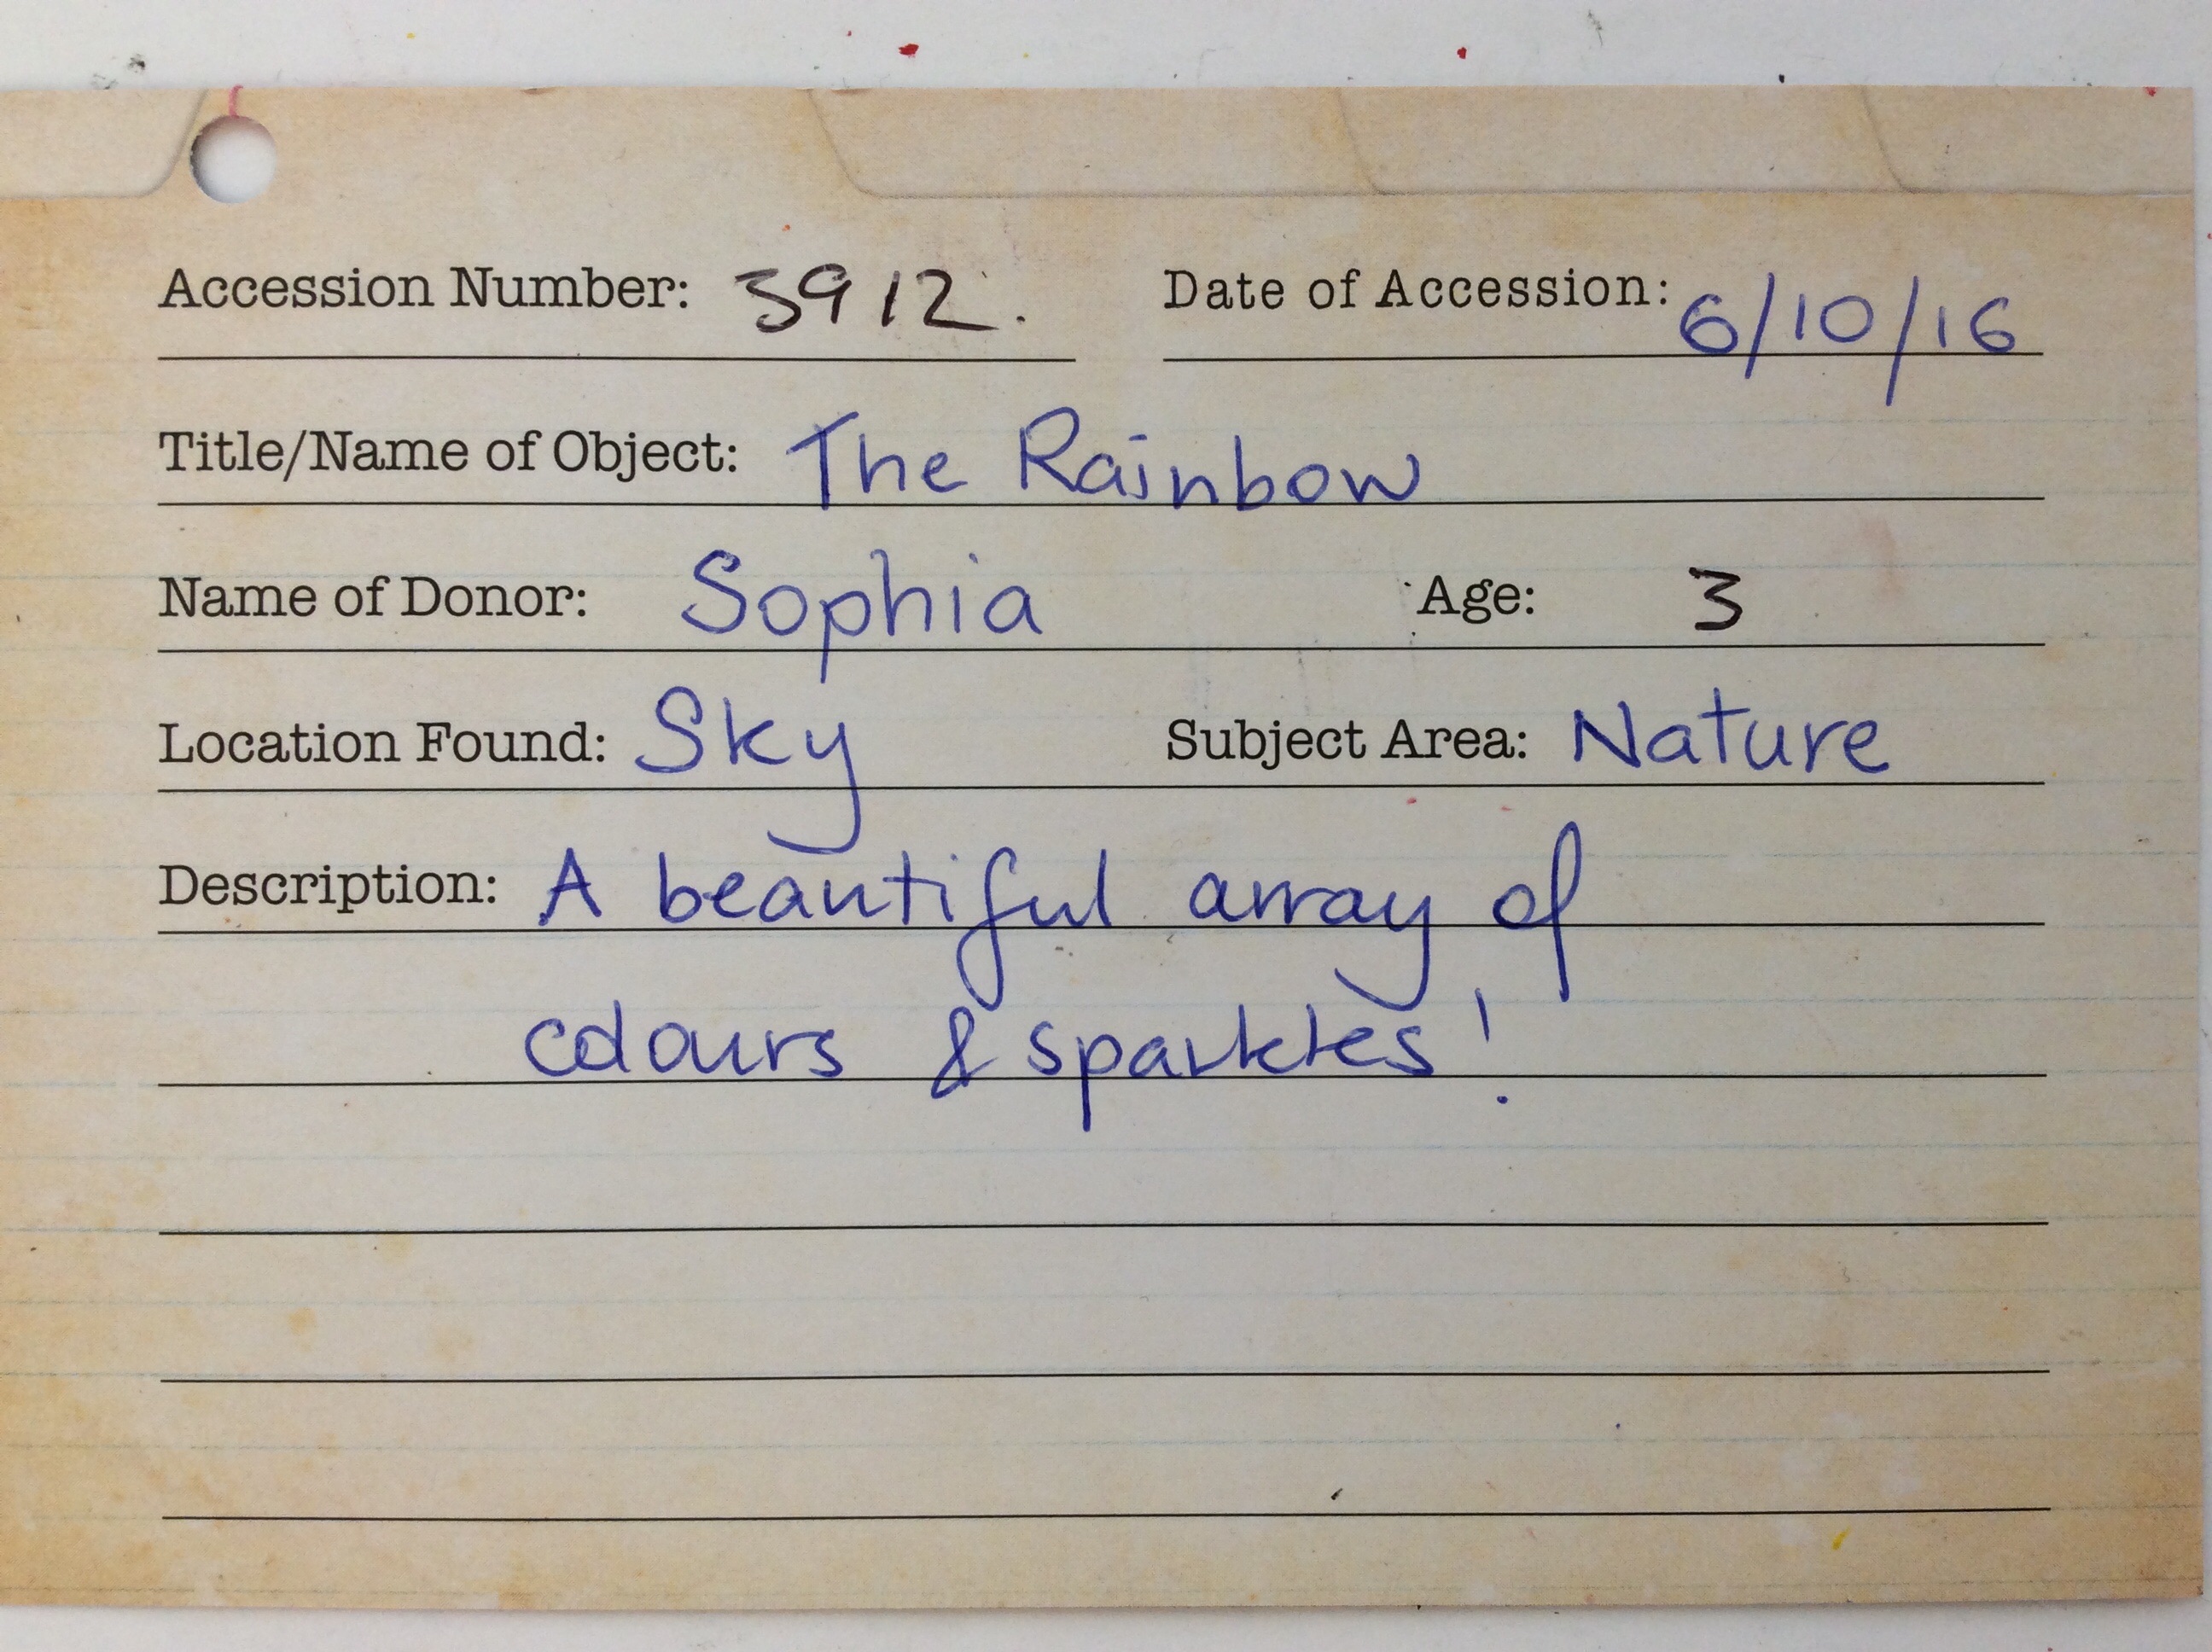 Accession Number: 3912. Date of Accession: 6/10/16
Title/Name of Object: The Rainbow
Name of Donor: Sophia Age: 3
Location Found: Sky Subject Area: Nature
Description: A beautiful array of
colours & sparkles!